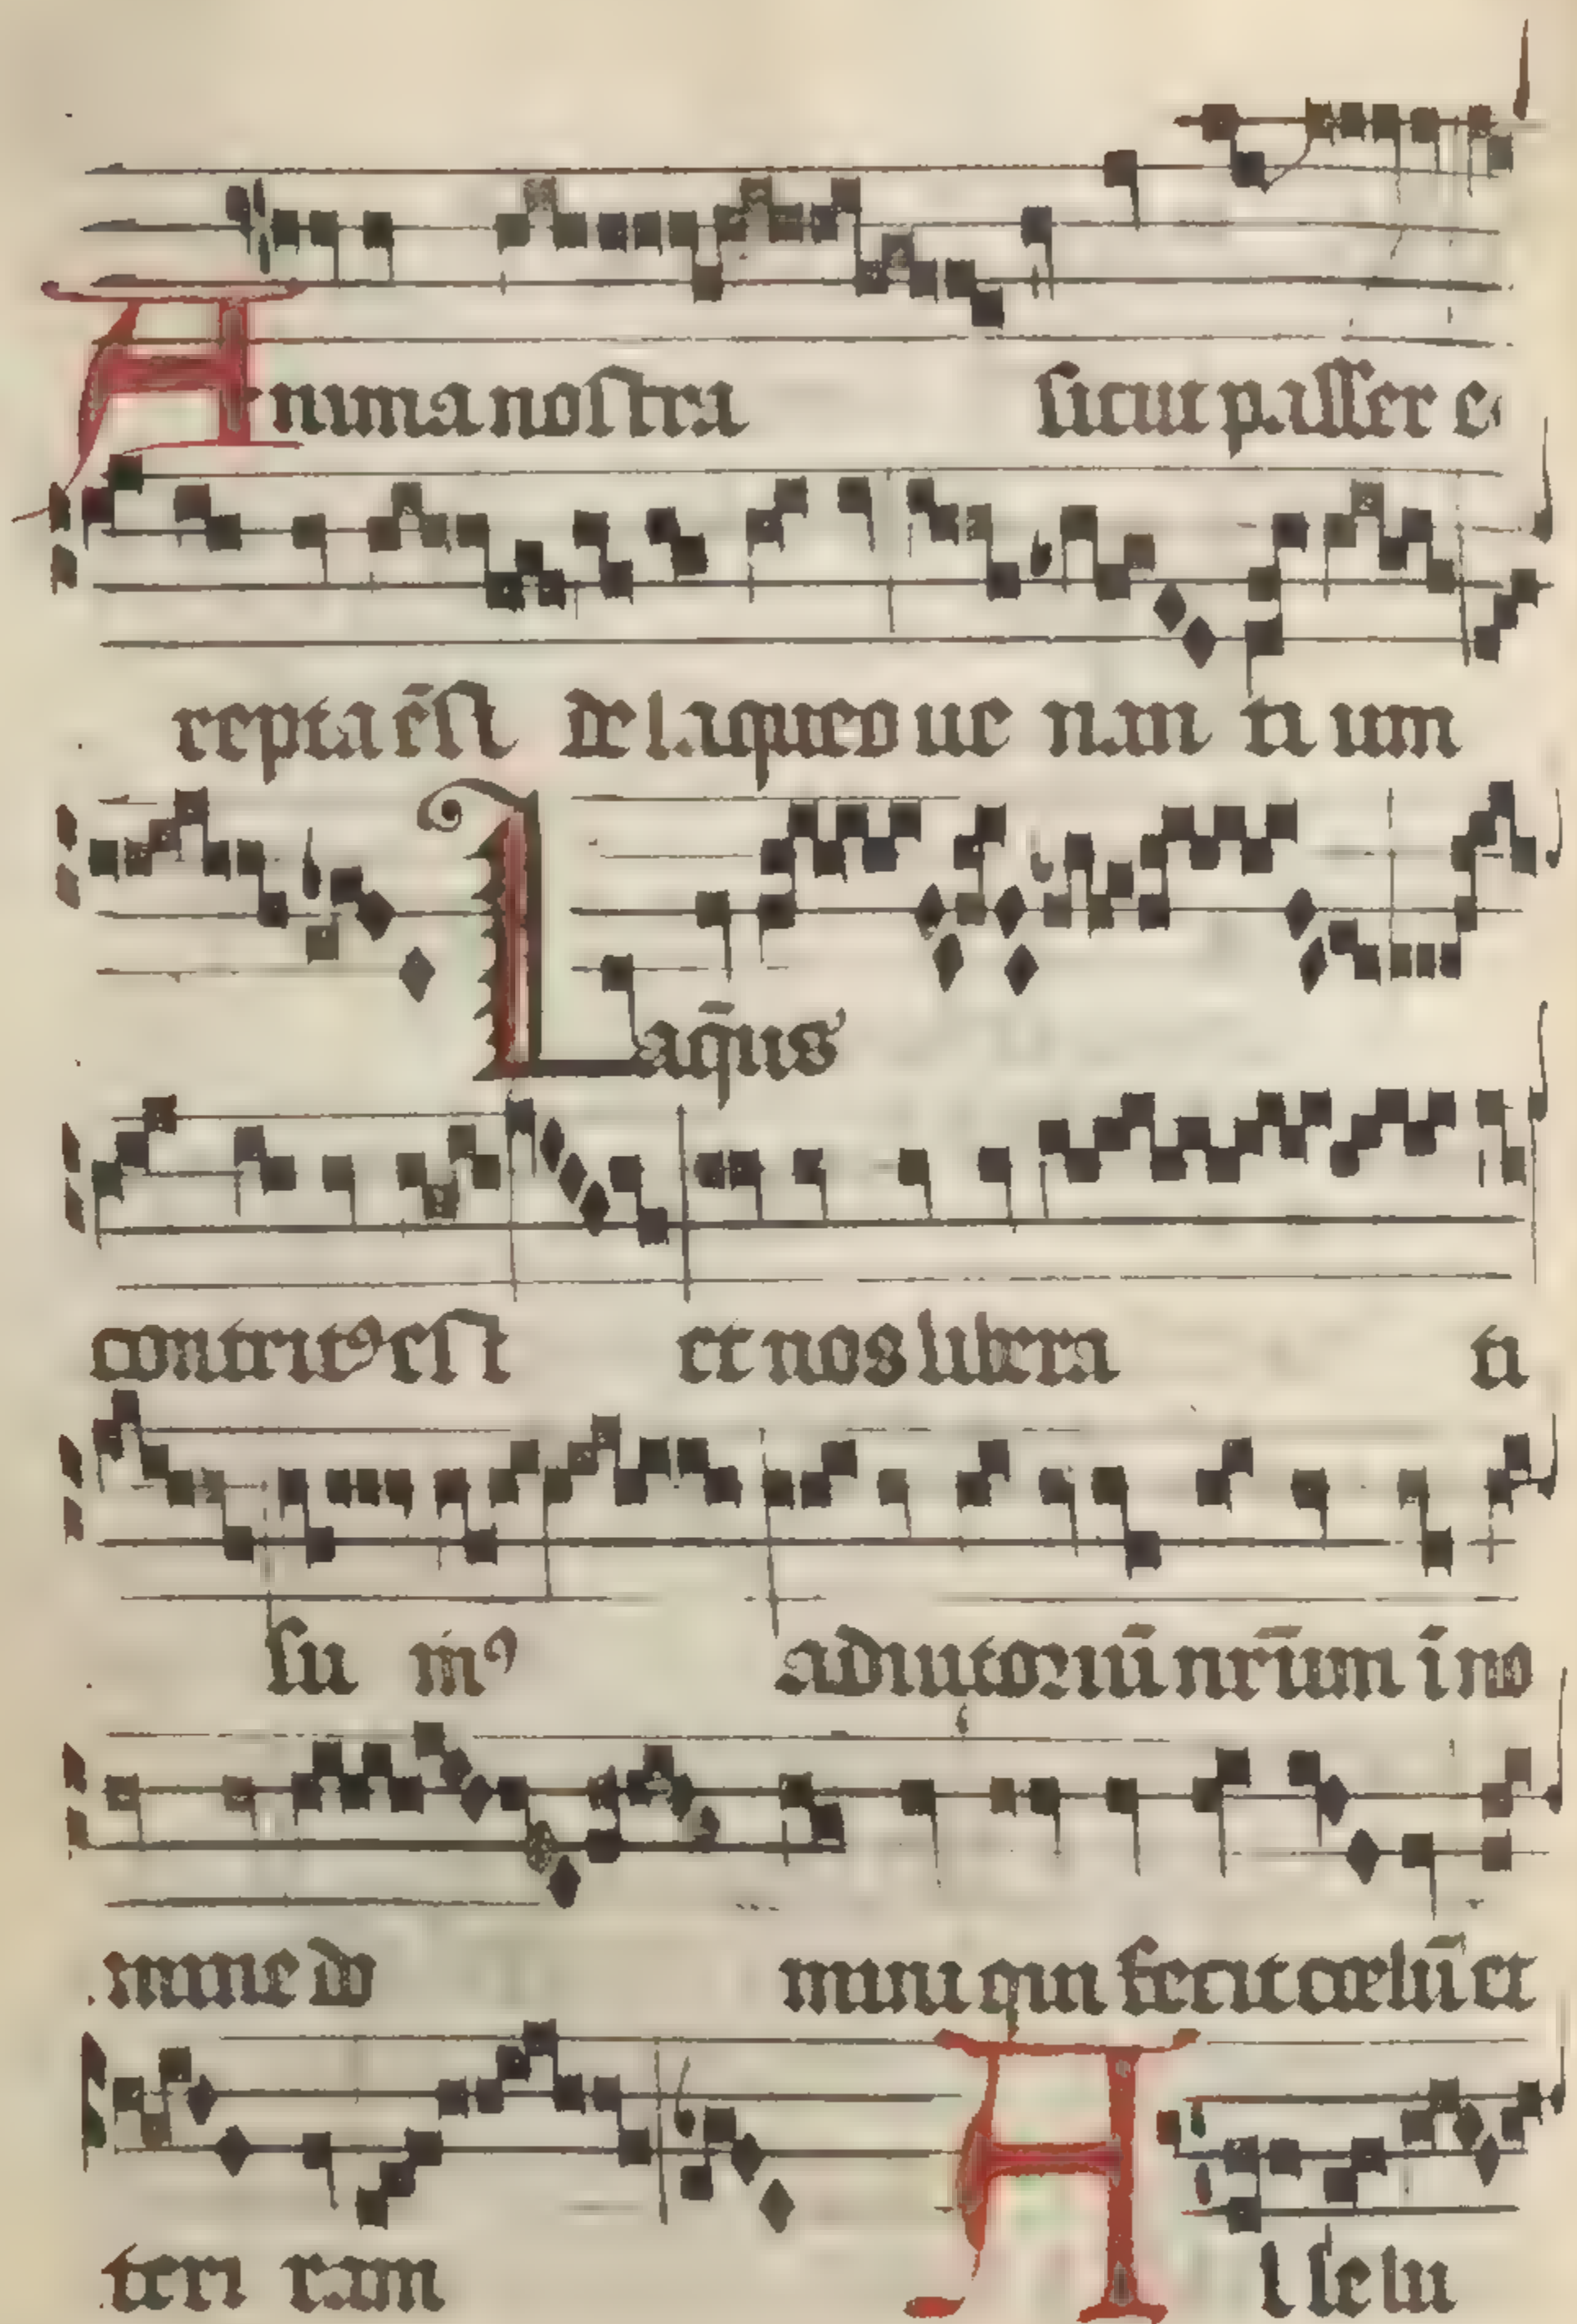 Anima nostra sicut passer e
repta ēst de laqueo ue nan ti um
Laq̄us
contritꝰ est et nos libera ti
su mꝰ adiutoriū nr̄um ī no
mine do mini qui fecit cœlū et
terr ram Allelu